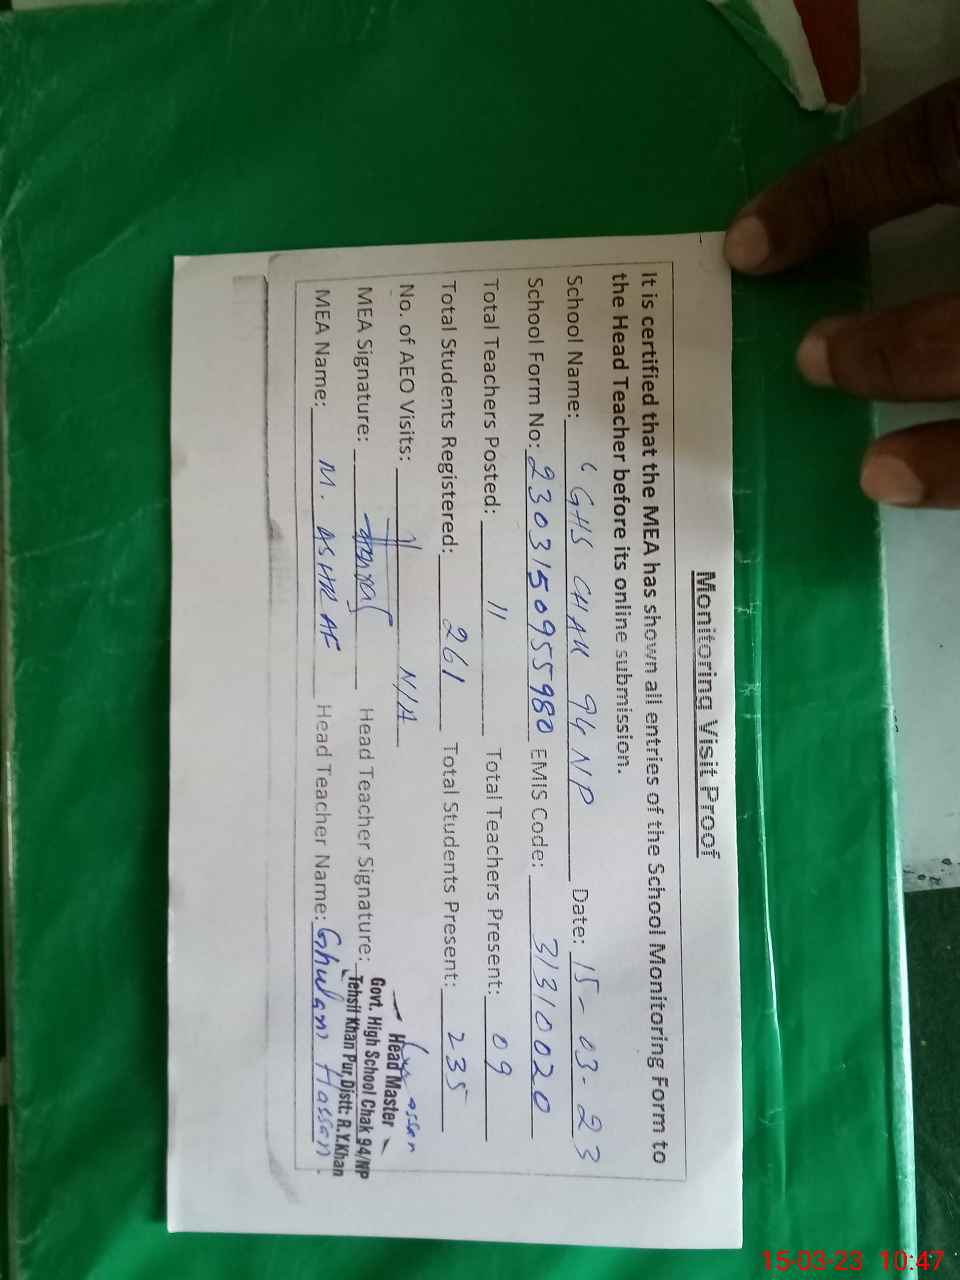 Monitoring Visit Proof
It is certified that the MEA has shown all entries of the School Monitoring Form to
the Head Teacher before its online submission.
School Name: GHS CHAK 94 NP Date: 15-03-23
School Form No: 23031509559 80 EMIS Code: 31310020
Total Teachers Posted: 11 Total Teachers Present: 09
Total Students Registered: 261 Total Students Present: 235
No. of AEO Visits: N/A
MEA Signature: Head Teacher Signature:
Head Master
Govt. High School Chak 94/NP
Tehsil Khan Pur, Distt: R.Y.Khan
MEA Name: M. ASHRAF Head Teacher Name: Ghulam Hassan.
15-03-23 10:47